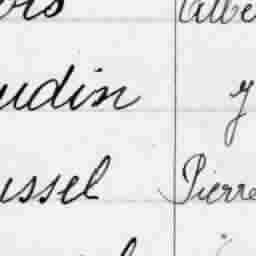 ois Albe
udin y
ussel Pierre